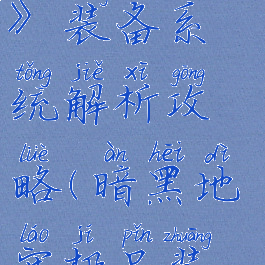 》装备系
tǒng jiě xī gōng
统解析攻
lüè àn hēi dì
略(暗黑地
láo jí pǐn zhuāng
牢极品装